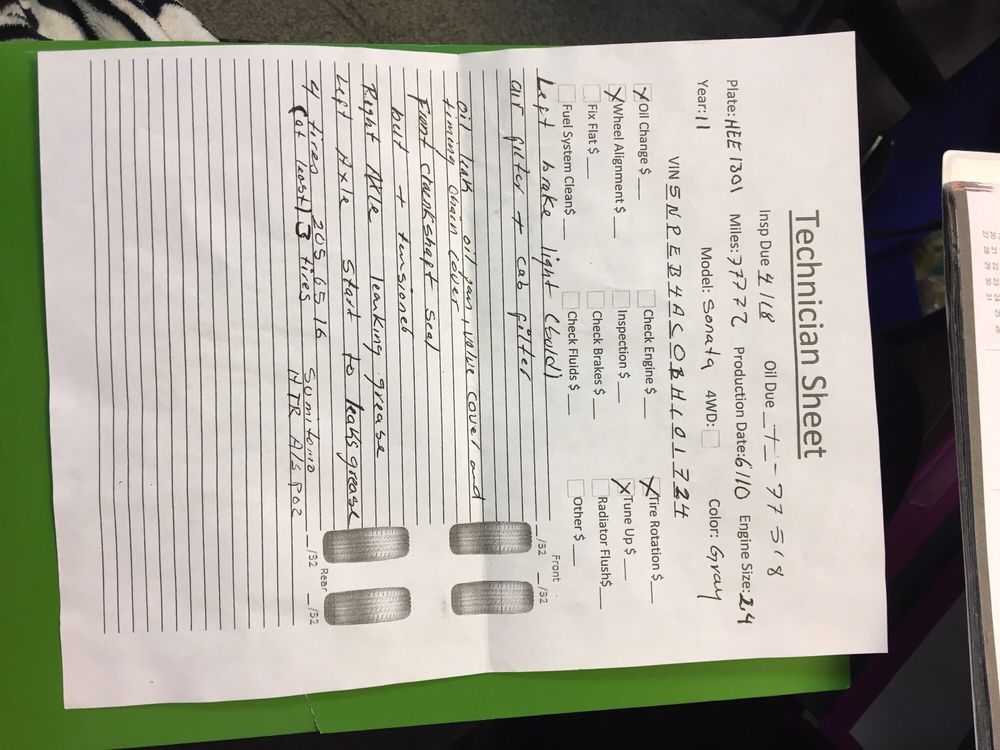 Technician Sheet
Insp Due 4/18 Oil Due
Plate: HEE 1301 Miles: 77772 Production Date: 6/10 Engine Size: 2.4
Year: 11 Model: Sonata 4WD: Color: Gray
VIN 5NPEB4AC0BH101724
X Oil Change $ __ Check Engine $ __ X Tire Rotation $ __
X Wheel Alignment $ __ Inspection $ __ X Tune Up $ __
Fix Flat $ __ Check Brakes $ __ Radiator Flush$ __
Fuel System Clean$ __ Check Fluids $ __ Other $ __
Left brake light (buld)
Front
__/32 __/32
air filter + cab filter
oil leak oil pan, valve cover and
timing chain cover
Front crankshaft seal
belt + tensioner
Right Axle leaking grease
Left Axle start to leaks grease
__/32 Rear __/32
4 tires 205 65 16 Sumitomo
(at least) 3 tires HTR A/S P02
20 21 22 23 24 25 26
27 28 29 30 31